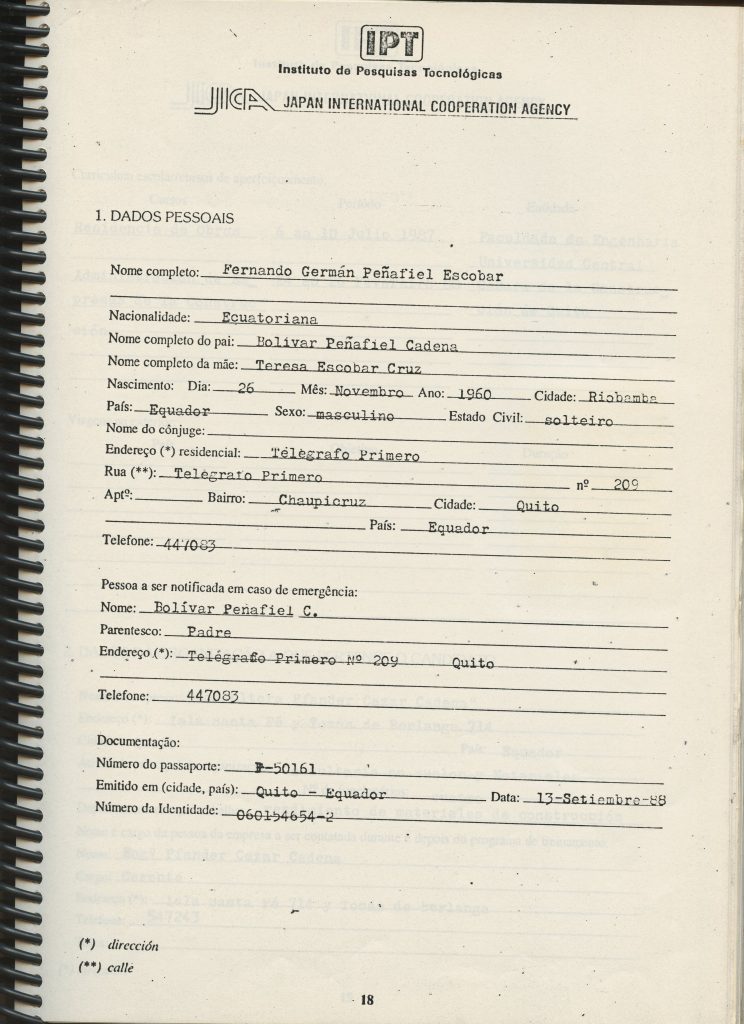 IPT
Instituto de Pesquisas Tecnológicas
JICA JAPAN INTERNATIONAL COOPERATION AGENCY
1. DADOS PESSOAIS
Nome completo: Fernando Germán Peñafiel Escobar
Nacionalidade: Ecuatoriana
Nome completo do pai: Bolívar Peñafiel Cadena
Nome completo da mãe: Teresa Escobar Cruz
Nascimento: Dia: 26 Mês: Novembro Ano: 1960 Cidade: Riobamba
País: Equador Sexo: masculino Estado Civil: solteiro
Nome do cônjuge:
Endereço (*) residencial: Telégrafo Primero
Rua (**): Telégrafo Primero nº 209
Aptº: Bairro: Chaupicruz Cidade: Quito
País: Equador
Telefone: 447083
Pessoa a ser notificada em caso de emergência:
Nome: Bolívar Peñafiel C.
Parentesco: Padre
Endereço (*): Telégrafo Primero Nº 209 Quito
Telefone: 447083
Documentação:
Número do passaporte: P-50161
Emitido em (cidade, país): Quito - Equador Data: 13-Setiembre-88
Número da Identidade: 060154654-2
(*) dirección
(**) calle
18